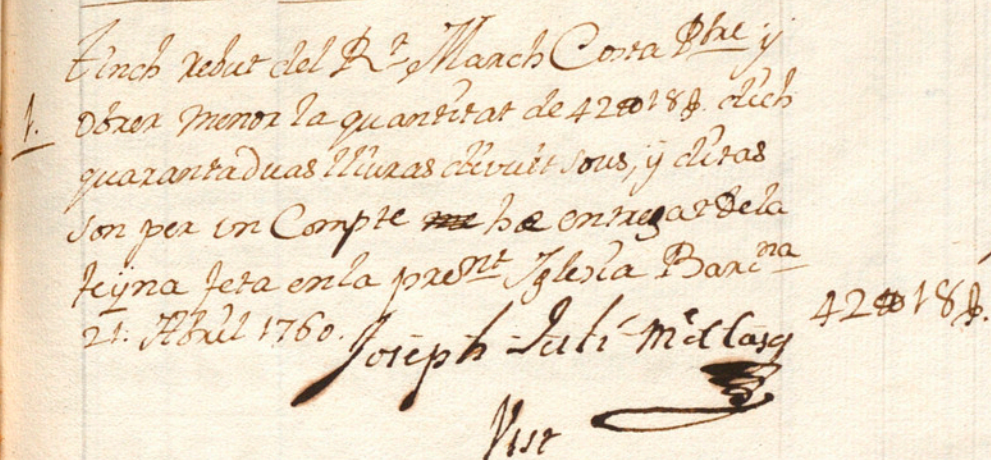 Tinch rebut del Rt March Costa Pbre y
1. Obrer menor la quantitat de 42 ₶ 18 ß. dich
quarantaduas lliuras divuit sous, y ditas
son per un Compte me ha entregat de la
feyna feta en la prent Iglesia Barcna
21. Abril 1760.
42 ₶ 18 ß.
Joseph Juli Me
Vist